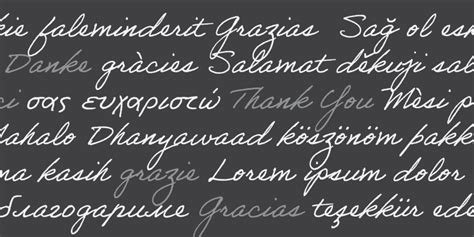 kie faleminderit Grazias Sağ ol esk
Danke gràcies Salamat děkuji sal
ci σας ευχαριστώ Thank You Mèsi p
Mahalo Dhanyawaad köszönöm pakk
ma kasih grazie Lorem ipsum dolor
благодариме Gracias teşekkür ede